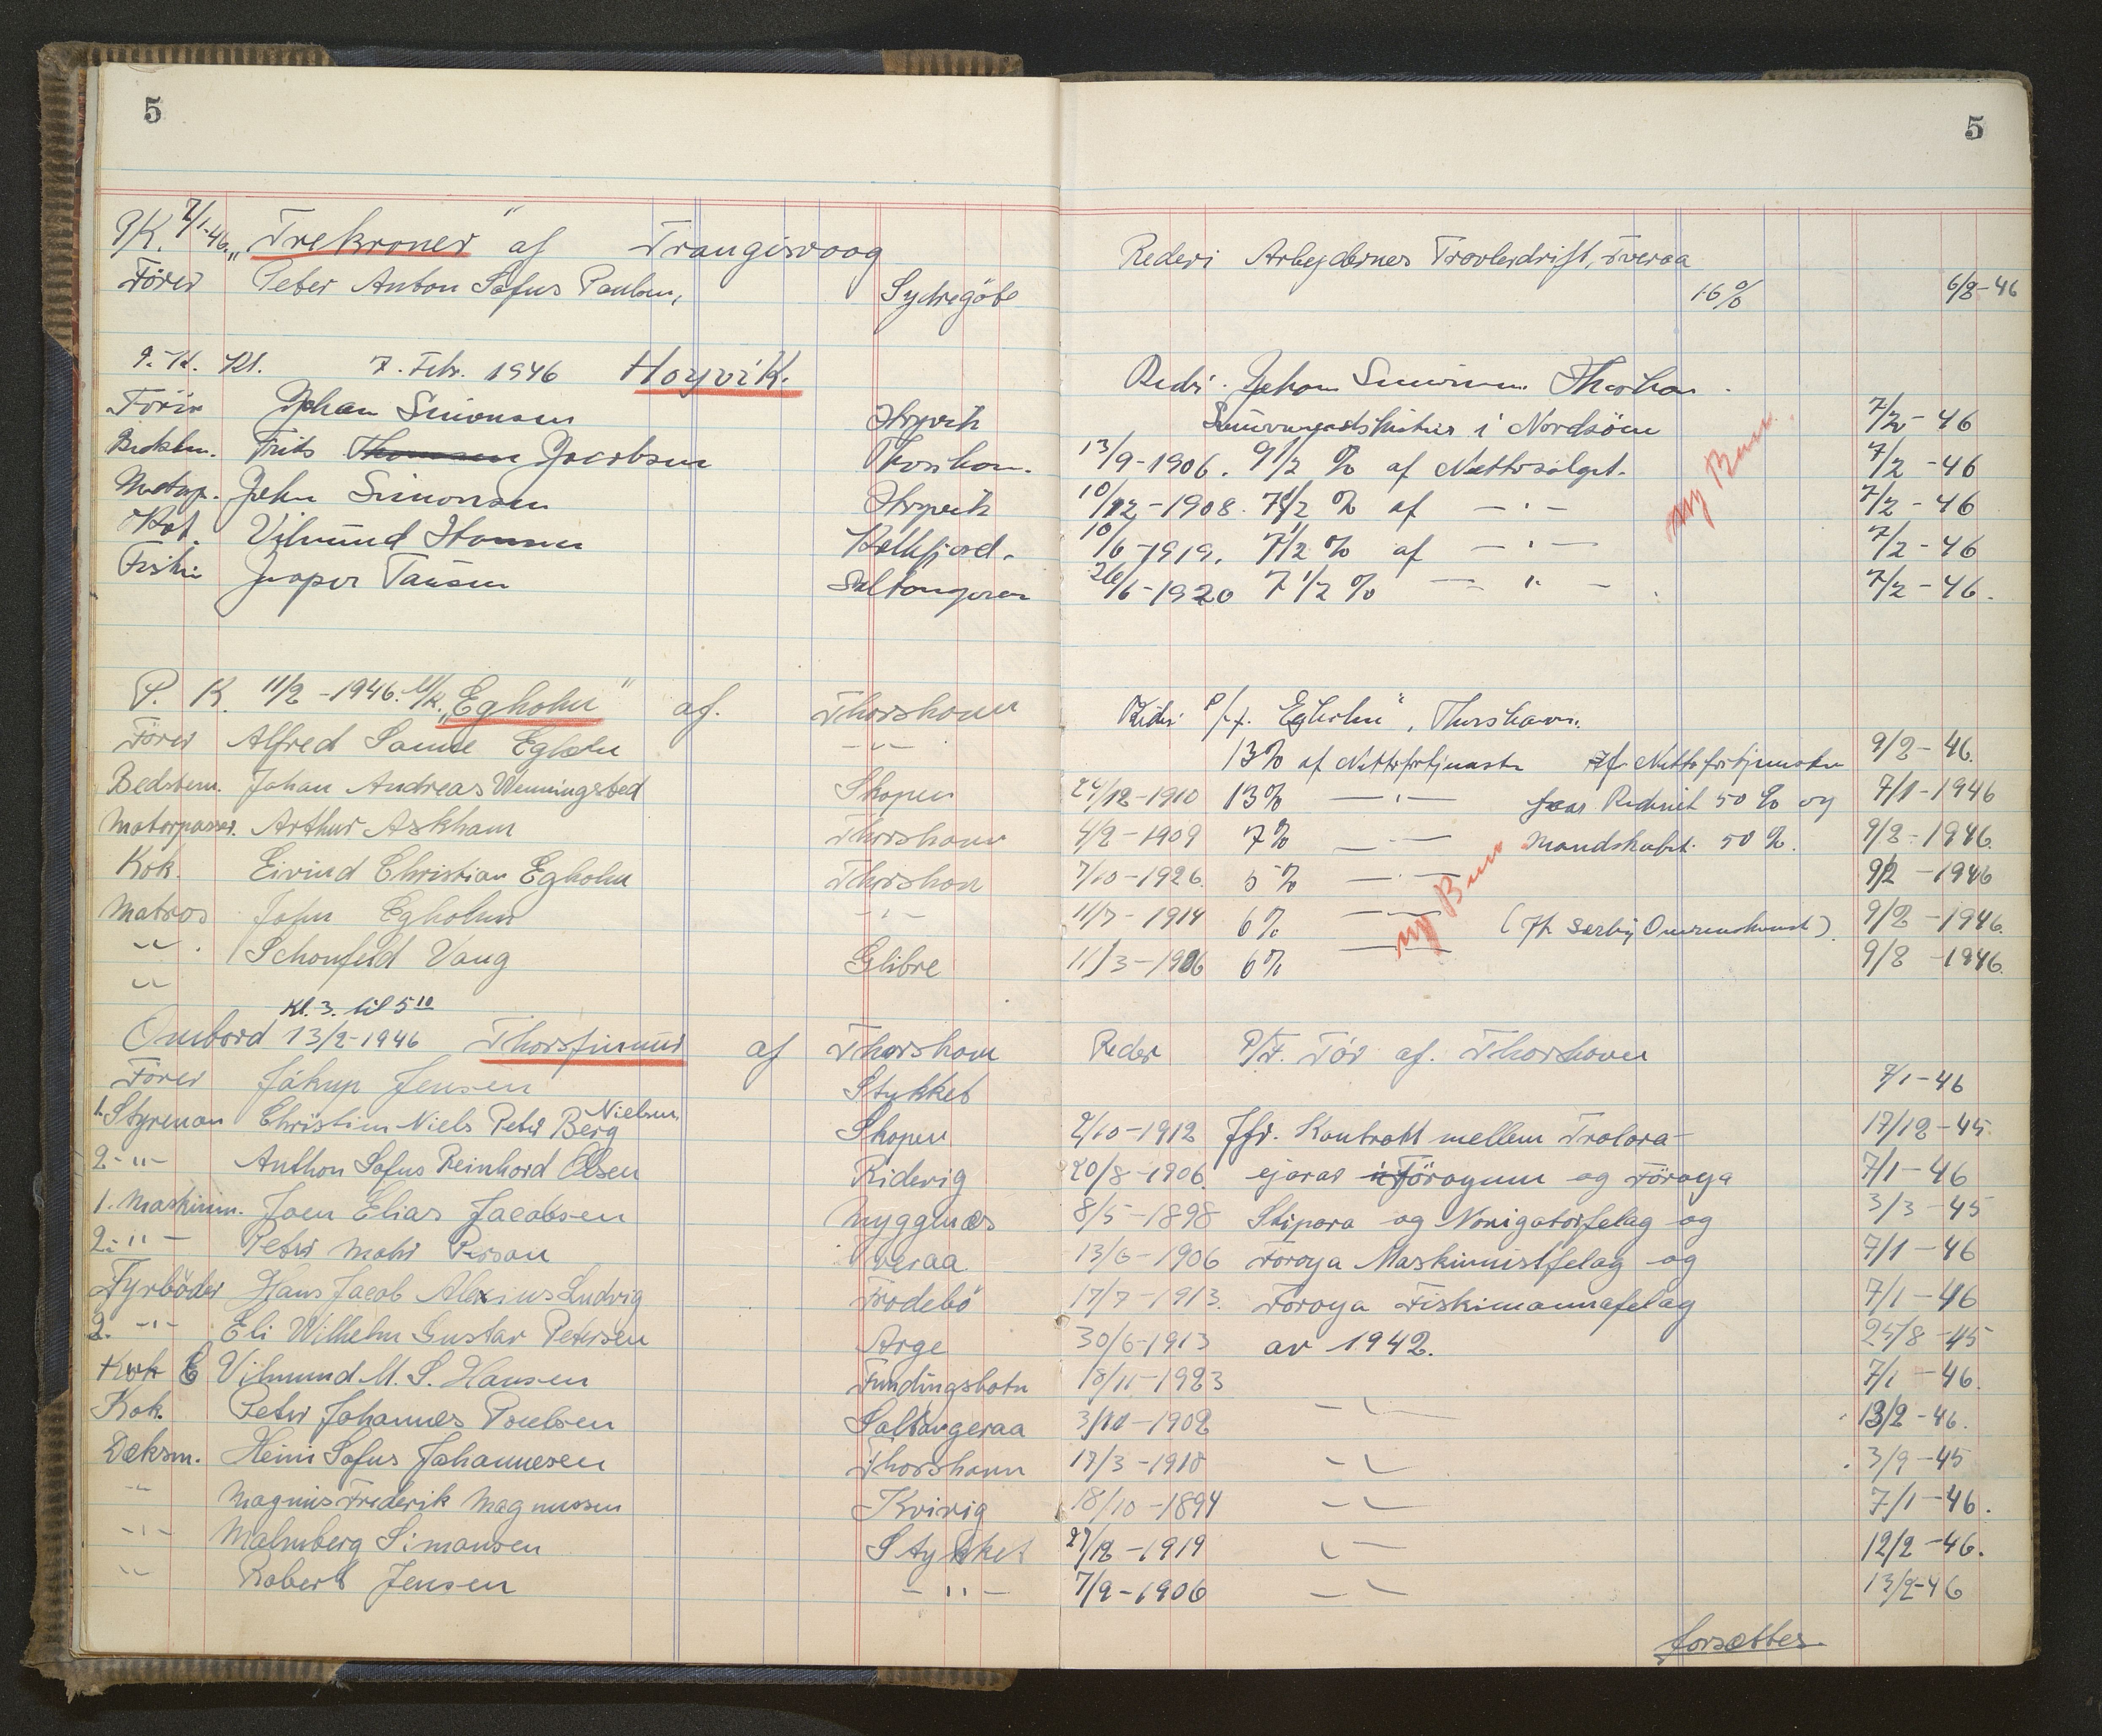 5
5
P.K. 7/1-46. „Trekroner" af Trangisvaag Rederi Arbejdernes Travlerdrift, Tveraa
Förer Peter Anton Sofus Poulsen, Sydregöte 16% 6/2-46
P.K. Kl. 7. Febr. 1946 Hoyvik. Rederi Johan Simonsen Thorshavn.
Förer Johan Simonsen Hoyvik i Nordsöen 7/2-46
Bedstem. Frits Thomsen Jacobsen Thorshavn. 13/9-1906. 9 1/2 % af Nettosalget. 7/2-46
Motorp. John Simonsen Hoyvik 10/12-1908. 7 1/2 % af -"- 7/2-46
Kok. Vilmund Hansen Kolkfjord. 10/6-1919. 7 1/2 % af -"- 7/2-46
Fisker Jasper Tausen Saltangeraa 26/6-1920 7 1/2 % -"- 7/2-46.
ny Bem.
P. K. 11/2-1946. M/K. „Egholm" af. Thorshavn Rederi P/f. Egholm", Thorshavn.
Förer Alfred Sanne Egholm -"- 13% af Nettofortjenesten Af Nettofortjenesten 9/2-46.
Bedstem. Johan Andreas Wenningsted Skopen 24/12-1910 13% -"- faar Rederiet 50% og 7/1-1946
Motorpasser. Arthur Askham Thorshavn 4/2-1909 7% -"- Mandskabet 50%. 9/2-1946.
Kok. Eivind Christian Egholm Thorshavn 7/10-1926. 5% -"- 9/2-1946
Matros John Egholm -"- 11/7-1914 6% -"- (If. Særlig Overenskomst). 9/2-1946.
-"- Schonfeld Vang Glibre 11/3-1906 6% 9/2-1946.
-"-
ny Bem
Kl. 3. til 5 10
Ombord 13/2-1946 Thorsfinnur af Thorshavn Reder P/F. Tór af. Thorshavn
Förer Jákup Jensen Stykket 7/1-46
1. Styrman Christian Niels Peter Berg Nielsen Skopen 2/10-1912 Jfr. Kontrakt mellem Trolara- 17/12-45
2. -"- Anthon Sofus Reinhord Olsen Riderig 20/8-1906. ejarar i Föroyum og Föroya 7/1-46
1. Maskinm. Joen Elias Jacobsen Nyggnæs 8/5-1898 Skipara og Navigatörfelag og 3/3-45
2. -"- Peter Mohr Person Tveraa 13/6-1906 Föroya Maskinnistfelag og 7/1-46
Fyrböder Hans Jacob Alexius Ludvig Frodebö 17/7-1913. Föroya Fiskimannafelag 7/1-46
2. -"- Eli Wilhelm Gustav Petersen Arge 30/6-1913 av 1942. 25/8-45
Kok E Vilmund M. S. Hansen Fundingsbotn 18/11-1923 7/1-46.
Kok. Peter Johannes Poulsen Saltangeraa 3/10-1902 -"- 13/2-46.
Dæksm. Heini Sofus Johannesen Thorshavn 17/3-1918 -"- 3/9-45
-"- Magnus Frederik Magnussen Kvivig 18/10-1894 -"- 7/1-46.
-"- Malmberg Simonsen Stykket 27/12-1919 -"- 12/2-46.
-"- Robert Jensen -"- 7/9-1906 -"- 13/2-46
forsættes